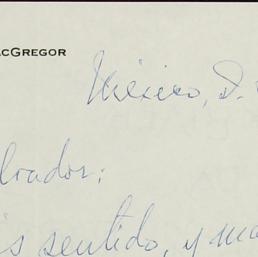 acGregor
México, D.
lvador:
is sentido, y ma